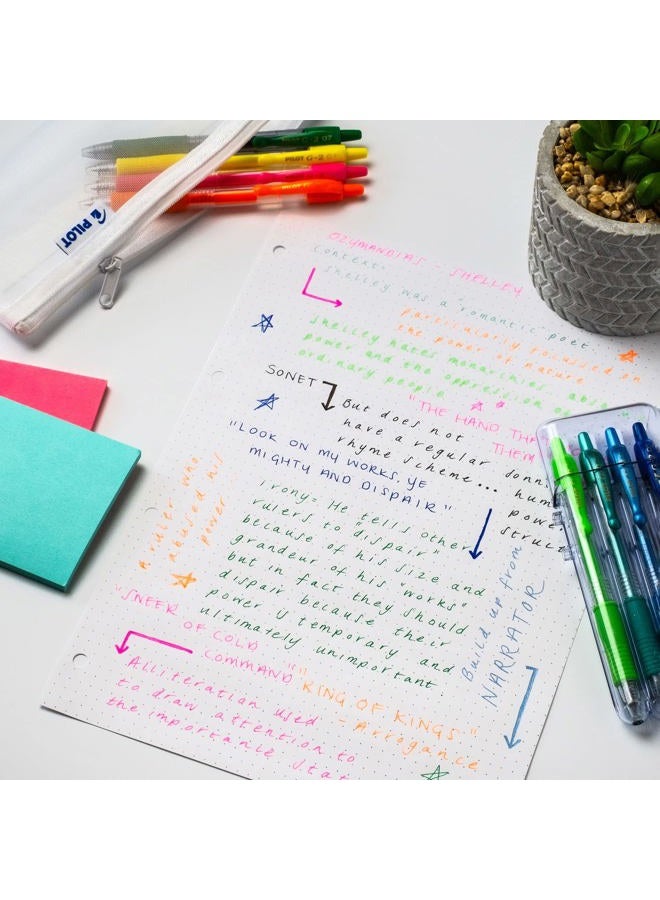 PILOT
PILOT G-2 07
OZYMANDIAS - SHELLEY
Context:
Shelley was a "romantic" poet.
particularly focussed on
the power of nature
Shelley hates monarchies, abso
power and the oppression of
ordinary people
SONET
"THE HAND THA
THEM
But does not
have a regular
rhyme scheme...
hum
power
struct
"LOOK ON MY WORKS, YE
MIGHTY AND DISPAIR"
irony = He tells other
rulers to "dispair"
because of his size and
grandeur of his "works"
but in fact they should
dispair because their
power is temporary and
ultimately unimportant
A ruler who
abused his
power
Build up from
NARRATOR
"SNEER
OF COLD
COMMAND"
"KING OF KINGS"
- Arrogance
Alliteration used
to draw attention to
the importance